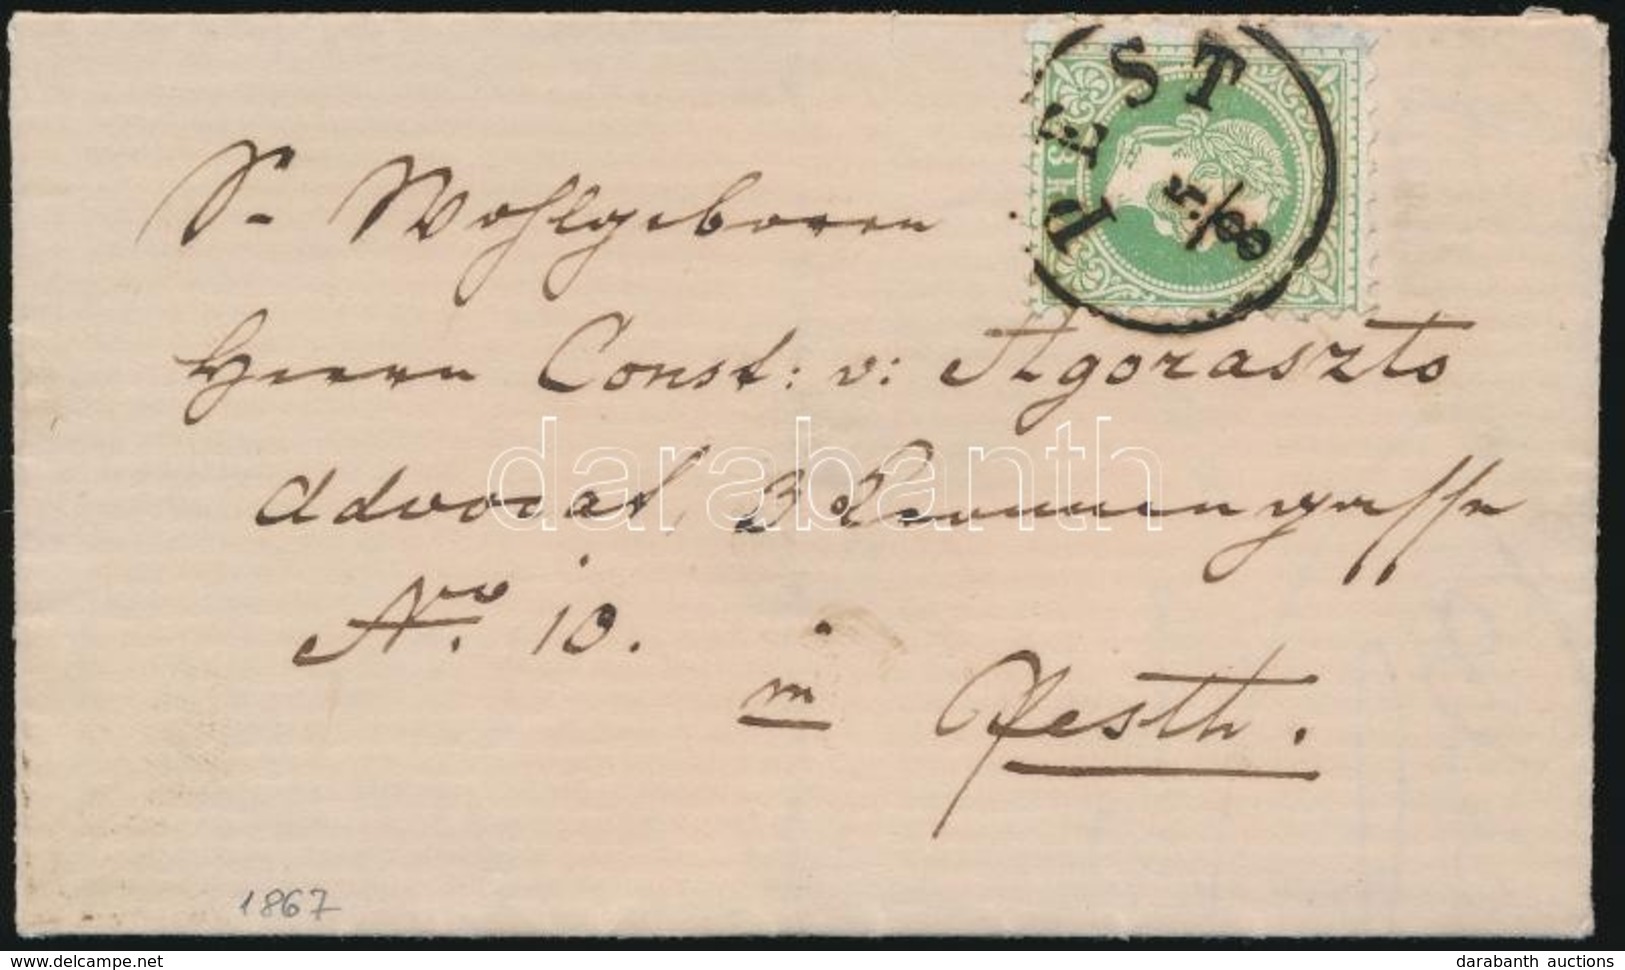 PEST
5/8
3 KR
Sr Wohlgeboren
Herrn Const: v: Agoraszto
Advocat, 3 Kronnengasse
Nro. 10.
in Pesth.
1867
darabanth
www.delcampe.net
darabanth auctions